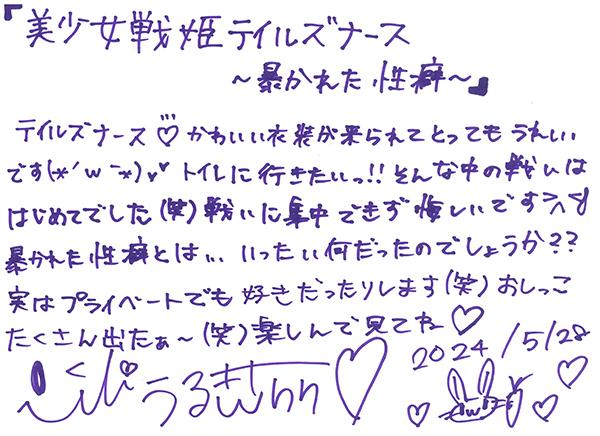 『美少女戦姫テイルズナース
～暴かれた性癖～』
テイルズナース♡かわいい衣装が来られてとってもうれしい
です(*´ω`*)♥♥トイレに行きたいっ!!そんな中の戦いは
はじめてでした(笑)戦いに集中できず悔しいです>^<
暴かれた性癖とは...いったい何だったのでしょうか??
実はプライベートでも好きだったりします(笑)おしっこ
たくさん出たぁ～(笑)楽しんで見てね♡
2024/5/28